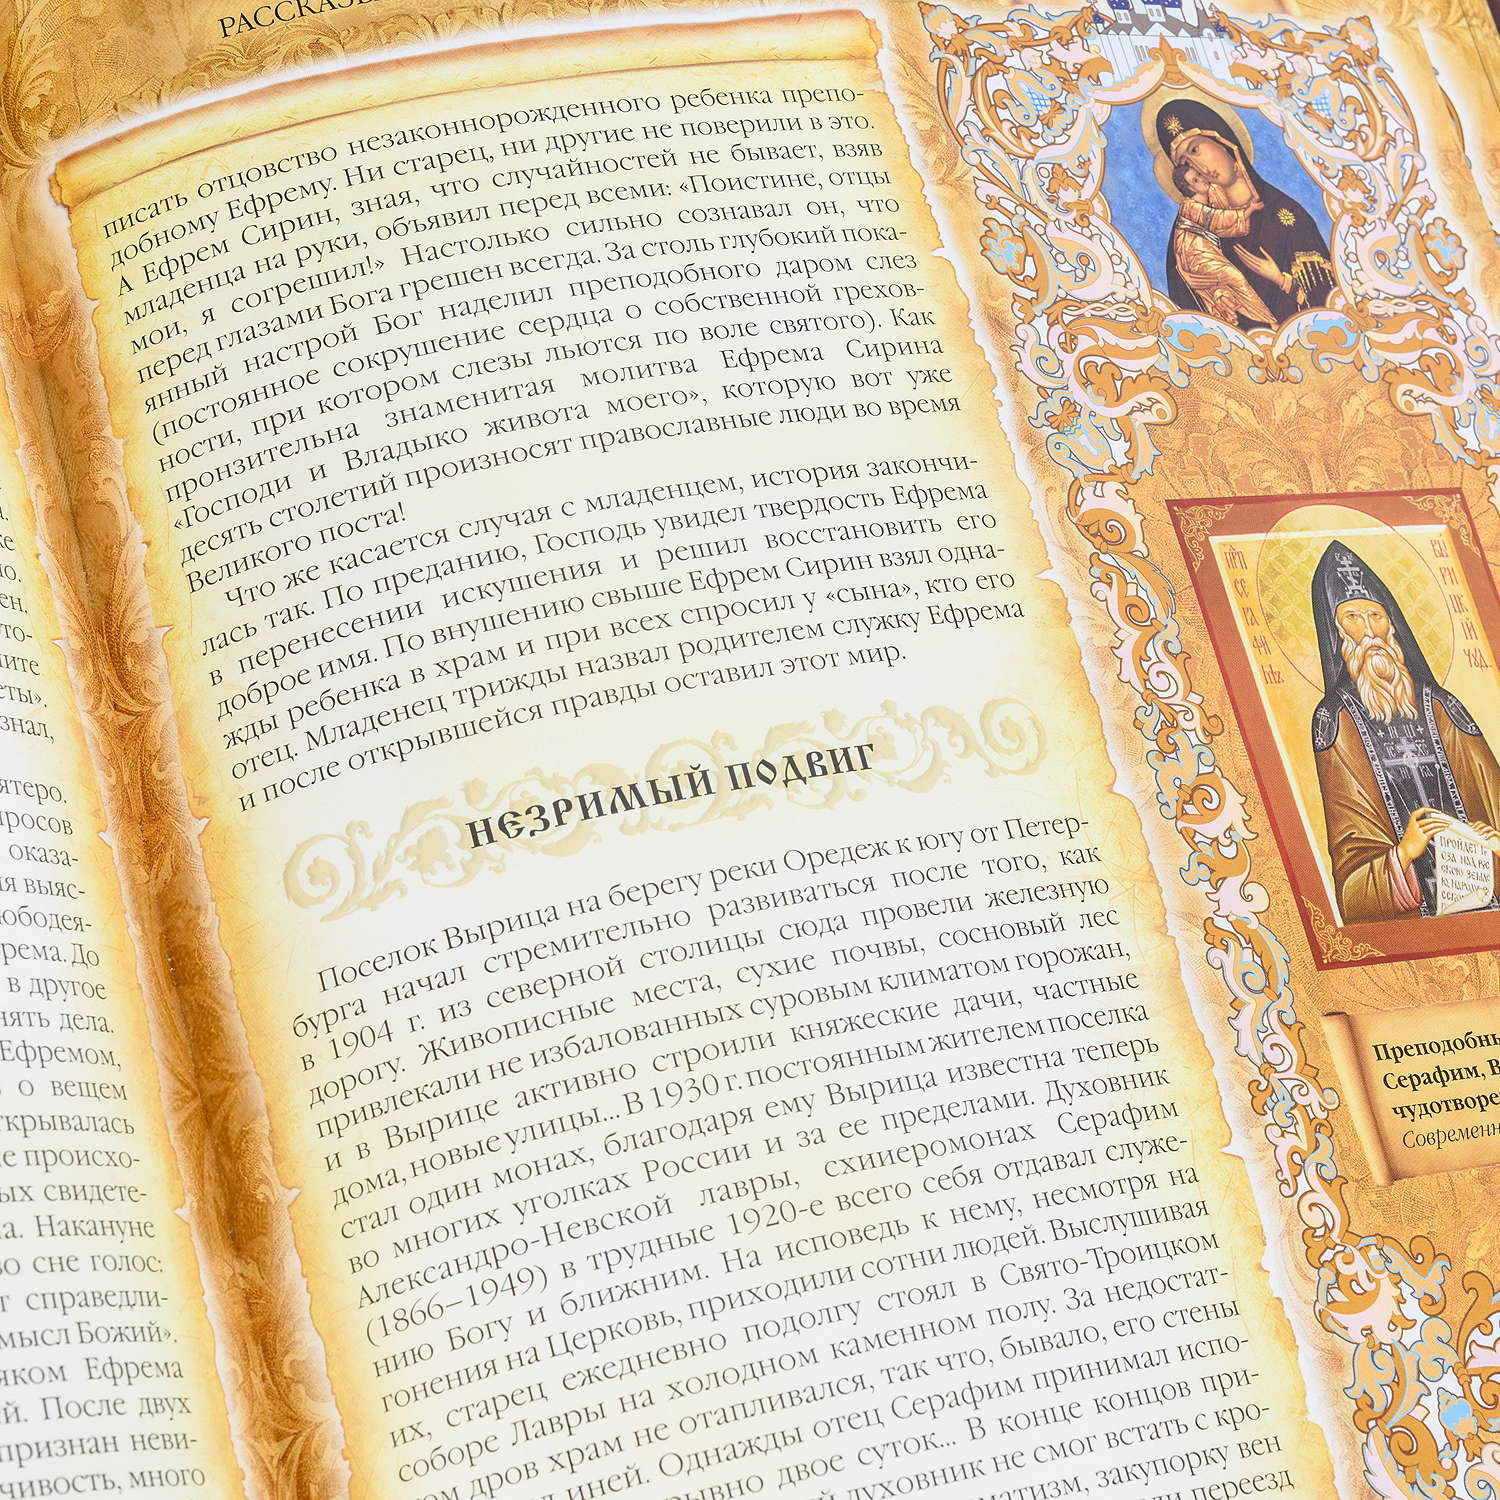 РАССКАЗЫ
писать отцовство незаконнорожденного ребенка препо-
добному Ефрему. Ни старец, ни другие не поверили в это.
А Ефрем Сирин, зная, что случайностей не бывает, взяв
младенца на руки, объявил перед всеми: «Поистине, отцы
мои, я согрешил!» Настолько сильно сознавал он, что
перед глазами Бога грешен всегда. За столь глубокий пока-
янный настрой Бог наделил преподобного даром слез
(постоянное сокрушение сердца о собственной грехов-
ности, при котором слезы льются по воле святого). Как
пронзительна знаменитая молитва Ефрема Сирина
«Господи и Владыко живота моего», которую вот уже
десять столетий произносят православные люди во время
Великого поста!
Что же касается случая с младенцем, история закончи-
лась так. По преданию, Господь увидел твердость Ефрема
в перенесении искушения и решил восстановить его
доброе имя. По внушению свыше Ефрем Сирин взял одна-
жды ребенка в храм и при всех спросил у «сына», кто его
отец. Младенец трижды назвал родителем служку Ефрема
и после открывшейся правды оставил этот мир.
НЕЗРИМЫЙ ПОДВИГ
Поселок Вырица на берегу реки Оредеж к югу от Петер-
бурга начал стремительно развиваться после того, как
в 1904 г. из северной столицы сюда провели железную
дорогу. Живописные места, сухие почвы, сосновый лес
привлекали не избалованных суровым климатом горожан,
и в Вырице активно строили княжеские дачи, частные
дома, новые улицы... В 1930 г. постоянным жителем поселка
стал один монах, благодаря ему Вырица известна теперь
во многих уголках России и за ее пределами. Духовник
Александро-Невской лавры, схииеромонах Серафим
(1866–1949) в трудные 1920-е всего себя отдавал служе-
нию Богу и ближним. На исповедь к нему, несмотря на
гонения на Церковь, приходили сотни людей. Выслушивая
их, старец ежедневно подолгу стоял в Свято-Троицком
соборе Лавры на холодном каменном полу. За недостат-
ком дров храм не отапливался, так что, бывало, его стены
иней. Однажды отец Серафим принимал испо-
двое суток... В конце концов при-
духовник не смог встать с кро-
закупорку вен
переезд
ятеро.
оказа-
я выяс-
До
в другое
нять дела.
Ефремом,
о вещем
ткрывалась
е происхо-
ых свидете-
Накануне
во сне голос:
справедли-
мысл Божий».
Ефрема
После двух
признан неви-
чивость, много
Преподобны
Серафим, В
чудотворе
Современн